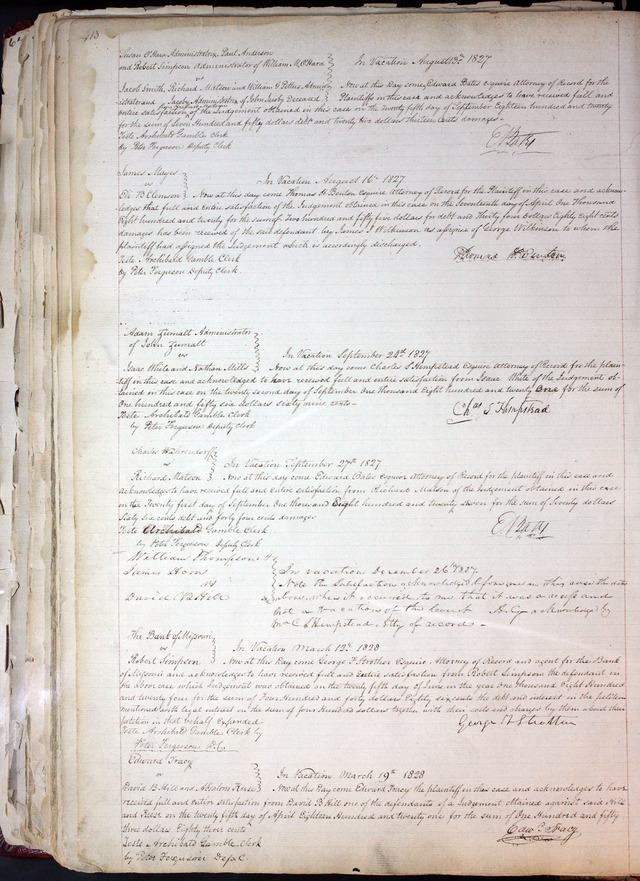 413
Susan O'Hara Administratrix, Paul Anderson
and Robert Simpson Administrator of William M. O'Hara
vs
In Vacation August 13th 1827
Jacob Smith, Richard Matson and William G Pettus Admin
istrator and Administratrix of John Jacoby Deceased
Now at this day come Edward Bates esquire Attorney of Record for the
Plaintiffs in this case and acknowledges to have received full and
entire satisfaction of the Judgement obtained in this case on the twenty fifth day of September Eighteen hundred and twenty
for the sum of Seven Hundred and fifty dollars debt and twenty two dollars thirteen Cents damages -
Teste Archibald Gamble Clerk
E. Bates
By Peter Ferguson Deputy Clerk
James Mayes
vs
In Vacation August 16th 1827
Eli B Clemson
Now at this day come Thomas H. Benton esquire Attorney of Record for the Plaintiff in this case and acknow
ledges that full and entire satisfaction of the Judgement obtained in this case on the Seventeenth day of April One Thousand
Eight hundred and twenty for the sum of Two hundred and fifty five dollars for debt and thirty four dollars Eighty Eight cents
damages has been received of the said defendant by James Wilkinson as assignee of George Wilkinson to whom the
plaintiff had assigned the Judgement which is accordingly discharged.
Teste Archibald Gamble Clerk
Thomas H. Benton
By Peter Ferguson Deputy Clerk.
Adam Zumalt Administrator
of John Zumalt
vs
In Vacation September 24th 1827
Isaac White and Nathan Mills
Now at this day come Charles S Hempstead Esquire Attorney of Record for the plain
tiff in this case and acknowledged to have received full and entire satisfaction from Isaac White of the Judgement ob
tained in this case on the twenty second day of September One Thousand Eight hundred and twenty for the sum of
One hundred and fifty six dollars sixty nine cents -
Teste Archibald Gamble Clerk
Chas S Hempstead
by Peter Ferguson Deputy Clerk
Charles
vs
In Vacation September 27th 1827
Richard Matson
Now at this day come Edward Bates esquire Attorney of Record for the Plaintiff in this case and
Acknowledge to have received full and entire satisfaction from Richard Matson of the Judgement obtained in this case
on the Twenty first day of September One thousand Eight hundred and twenty seven for the sum of Seventy dollars
Sixty six cents debt and forty four cents damages
Teste Archibald Gamble Clerk
E. Bates
by Peter Ferguson Deputy Clerk
William Thompson
James Horn
vs
David B Hill
In vacation December 26th 1827.
Note the Satisfaction acknowledged before me in this case the date
above, when it occurred to me that it was a recess and
not a vacation of the Court A. G. acknowledged by
Mr C S Hempstead Atty of record -
The Bank of Missouri
vs
In Vacation March 12th 1828
Robert Simpson
Now at this day come George F Strother Esquire, Attorney of Record and agent for the Bank
of Missouri and acknowledge to have received full and Entire satisfaction from Robert Simpson the defendant in
the above case which Judgement was obtained on the twenty fifth day of June in the year One thousand Eight Hundred
and twenty four for the sum of Four Hundred and forty dollars Eighty six cents the debt and interest in the petition
mentioned with legal interest on the sum of four Hundred dollars together with their costs and charges by them about their
petition in that behalf Expended
George F Strother
Teste Archibald Gamble Clerk by
Peter Ferguson D.C.
Edward Tracy
vs
In Vacation March 19th 1828
David B Hill and Absolom Keise
Now at this day come Edward Tracy the plaintiff in this case and acknowledges to have
received full and entire satisfaction from David B Hill one of the defendants of a Judgement obtained against said Hill
and on the twenty fifth day of April Eighteen Hundred and twenty one for the sum of One Hundred and fifty
three dollars Eighty three cents
Edwd Tracy
Teste Archibald Gamble Clerk
by Peter Ferguson Dep C